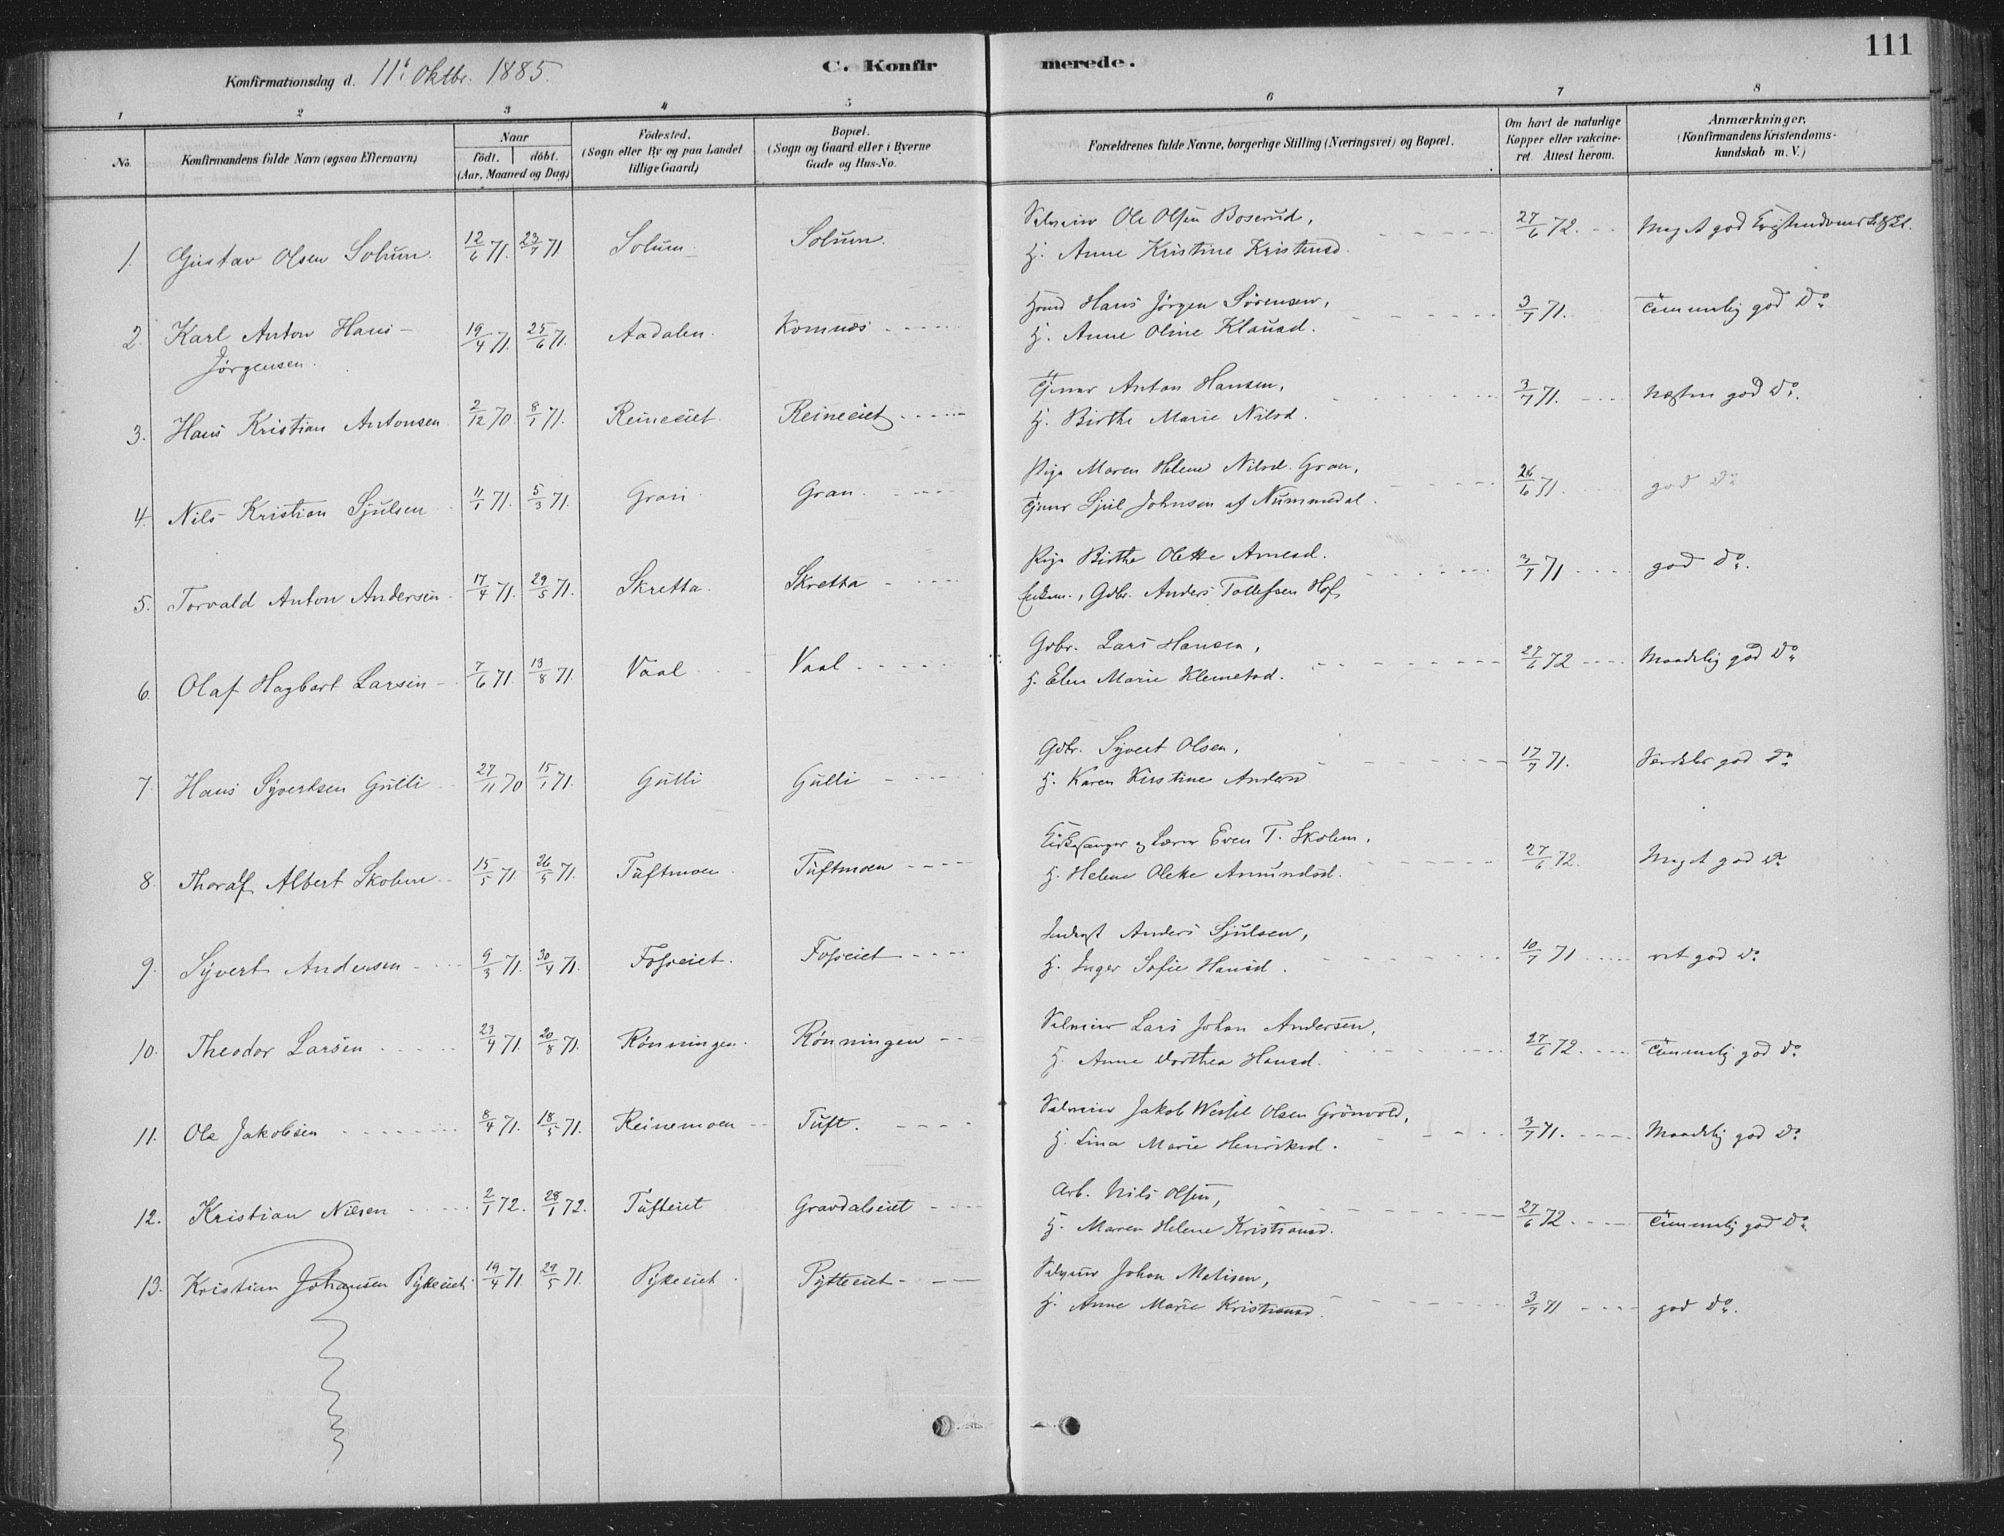 111
Konfirmationsdag d. 11te Oktbr. 1885.
C. Konfirmerede.
1 2 3 4 5 6 7 8
No.
Konfirmandens fulde Navn (ogsaa Efternavn)
Naar
födt. döbt.
(Aar, Maaned og Dag)
Födested.
(Sogn eller By og paa Landet
tillige Gaard)
Bopæl.
(Sogn og Gaard eller i Byerne
Gade og Hus-No.
Forældrenes fulde Navne, borgerlige Stilling (Næringsvei) og Bopæl.
Om havt de naturlige
Kopper eller vakcine-
ret. Attest herom.
Anmærkninger.
(Konfirmandens Kristendoms-
kundskab m. V.)
1. Gustav Olsen Solum. 12/6 71. 23/7 71 Solum Solum.
Ole Olsen Boserud,
H. Anne Kristine Kristensd.
27/6 72. Meget god
2. Karl Anton Hans-
Jørgensen. 19/4 71. 25/6 71. Aadalen. Komnæs
Hans Jørgen Sørensen,
H. Anne Oline Klausd.
3/7 71. Temmelig god Do.
3. Hans Kristian Antonsen 2/12 70. 8/1 71. Reineeiet. Reineeiet
Anton Hansen,
H. Birthe Marie Nilsd.
3/7 71. næsten god Do.
4. Nils Kristian Sjulsen 11/1 71. 5/3 71. Gran. Gran.
Pige Maren Helene Nilsd. Gran,
Sjul Johnsen af Nummedal.
26/6 71. god Do
5. Torvald Anton Andersen 17/4 71. 29/5 71. Skretta. Skretta
Pige Birthe Olette Arnesd.
Gdbr. Anders Tollefsen Hof,
3/7 71 god Do.
6. Olaf Hagbart Larsen 7/6 71. 13/8 71. Vaal Vaal
Gdbr. Lars Hansen,
H. Elen Marie Klemetsd.
27/6 72 Maadelig god Do
7. Hans Syvertsen Gulli 27/11 70 15/1 71. Gulli Gulli
Gdbr. Syvert Olsen,
H. Karen Kirstine Andersd
17/7 71. Særdeles god Do
8. Thoralf Albert Skolem 15/5 71. 26/5 71. Tuftmoen. Tuftmoen
Kirkesanger og Lærer Even T. Skolem,
H. Helene Olette Amundsd.
27/6 72. Meget god Do
9. Syvert Andersen 9/3 71. 30/4 71. Fosseiet. Fosseiet
Inderst Anders Sjulsen,
H. Inger Sofie Hansd.
10/7 71 ret god Do
10. Theodor Larsen 23/4 71. 20/8 71. Rønningen. Rønningen
Lars Johan Andersen,
H. Anne Dorthea Hansd.
27/6 72. Temmelig god Do
11. Ole Jakobsen 8/4 71. 18/5 71. Reinemoen Tuft.
Jakob Wessel Olsen Grönvold,
H. Lina Marie Henriksd.
3/7 71. Maadelig god Do
12. Kristian Nilsen 2/1 72. 28/1 72. Tufteiet Gravdalseiet
Arb. Nils Olsen,
H. Maren Helene Kristiansd.
27/6 72. Temmelig god Do
13. Kristian Johansen Pykeeiet 19/4 71. 29/5 71. Pykeeiet. Pytteeiet
Johan Matisen,
H. Anne Marie Kristiansd.
3/7 71 god Do.